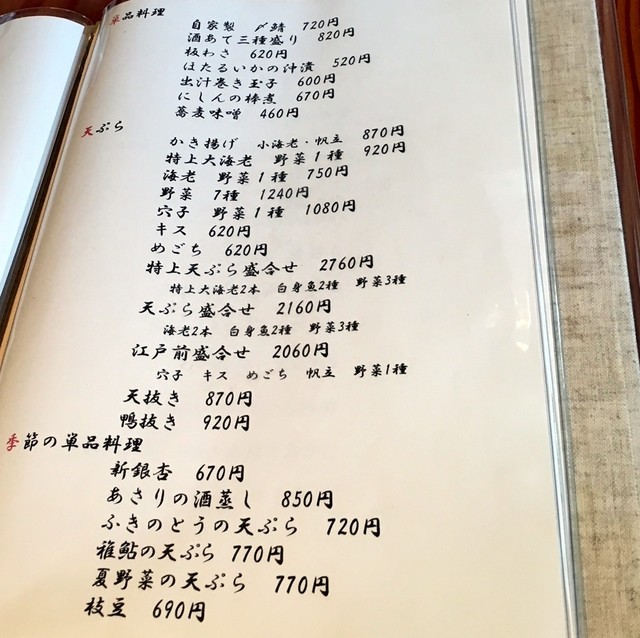 単品料理
自家製 〆鯖 720円
酒あて三種盛り 820円
板わさ 620円
ほたるいかの沖漬 520円
出汁巻き玉子 600円
にしんの棒煮 670円
蕎麦味噌 460円
天ぷら
かき揚げ 小海老・帆立 870円
特上大海老 野菜1種 920円
海老 野菜1種 750円
野菜 7種 1240円
穴子 野菜1種 1080円
キス 620円
めごち 620円
特上天ぷら盛合せ 2760円
特上大海老2本 白身魚2種 野菜3種
天ぷら盛合せ 2160円
海老2本 白身魚2種 野菜3種
江戸前盛合せ 2060円
穴子 キス めごち 帆立 野菜1種
天抜き 870円
鴨抜き 920円
季節の単品料理
新銀杏 670円
あさりの酒蒸し 850円
ふきのとうの天ぷら 720円
稚鮎の天ぷら 770円
夏野菜の天ぷら 770円
枝豆 690円